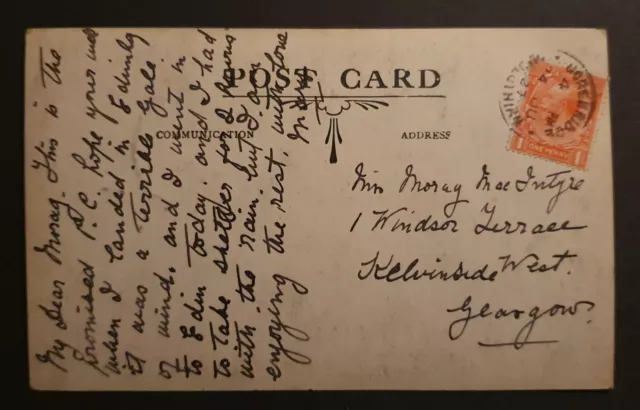 POST CARD
COMMUNICATION
ADDRESS
My Dear Morag. This is the
promised P.C. hope your well
when I landed in Edinbg
it was a terrible gale
of wind, and I went in
to Edin today. and I had
to take shelter for 2 hours
with the rain. but I am
enjoying the rest. with love
Miss Morag MacIntyre
1 Windsor Terrace
Kelvinside West.
Glasgow.
1 1
ONE PENNY